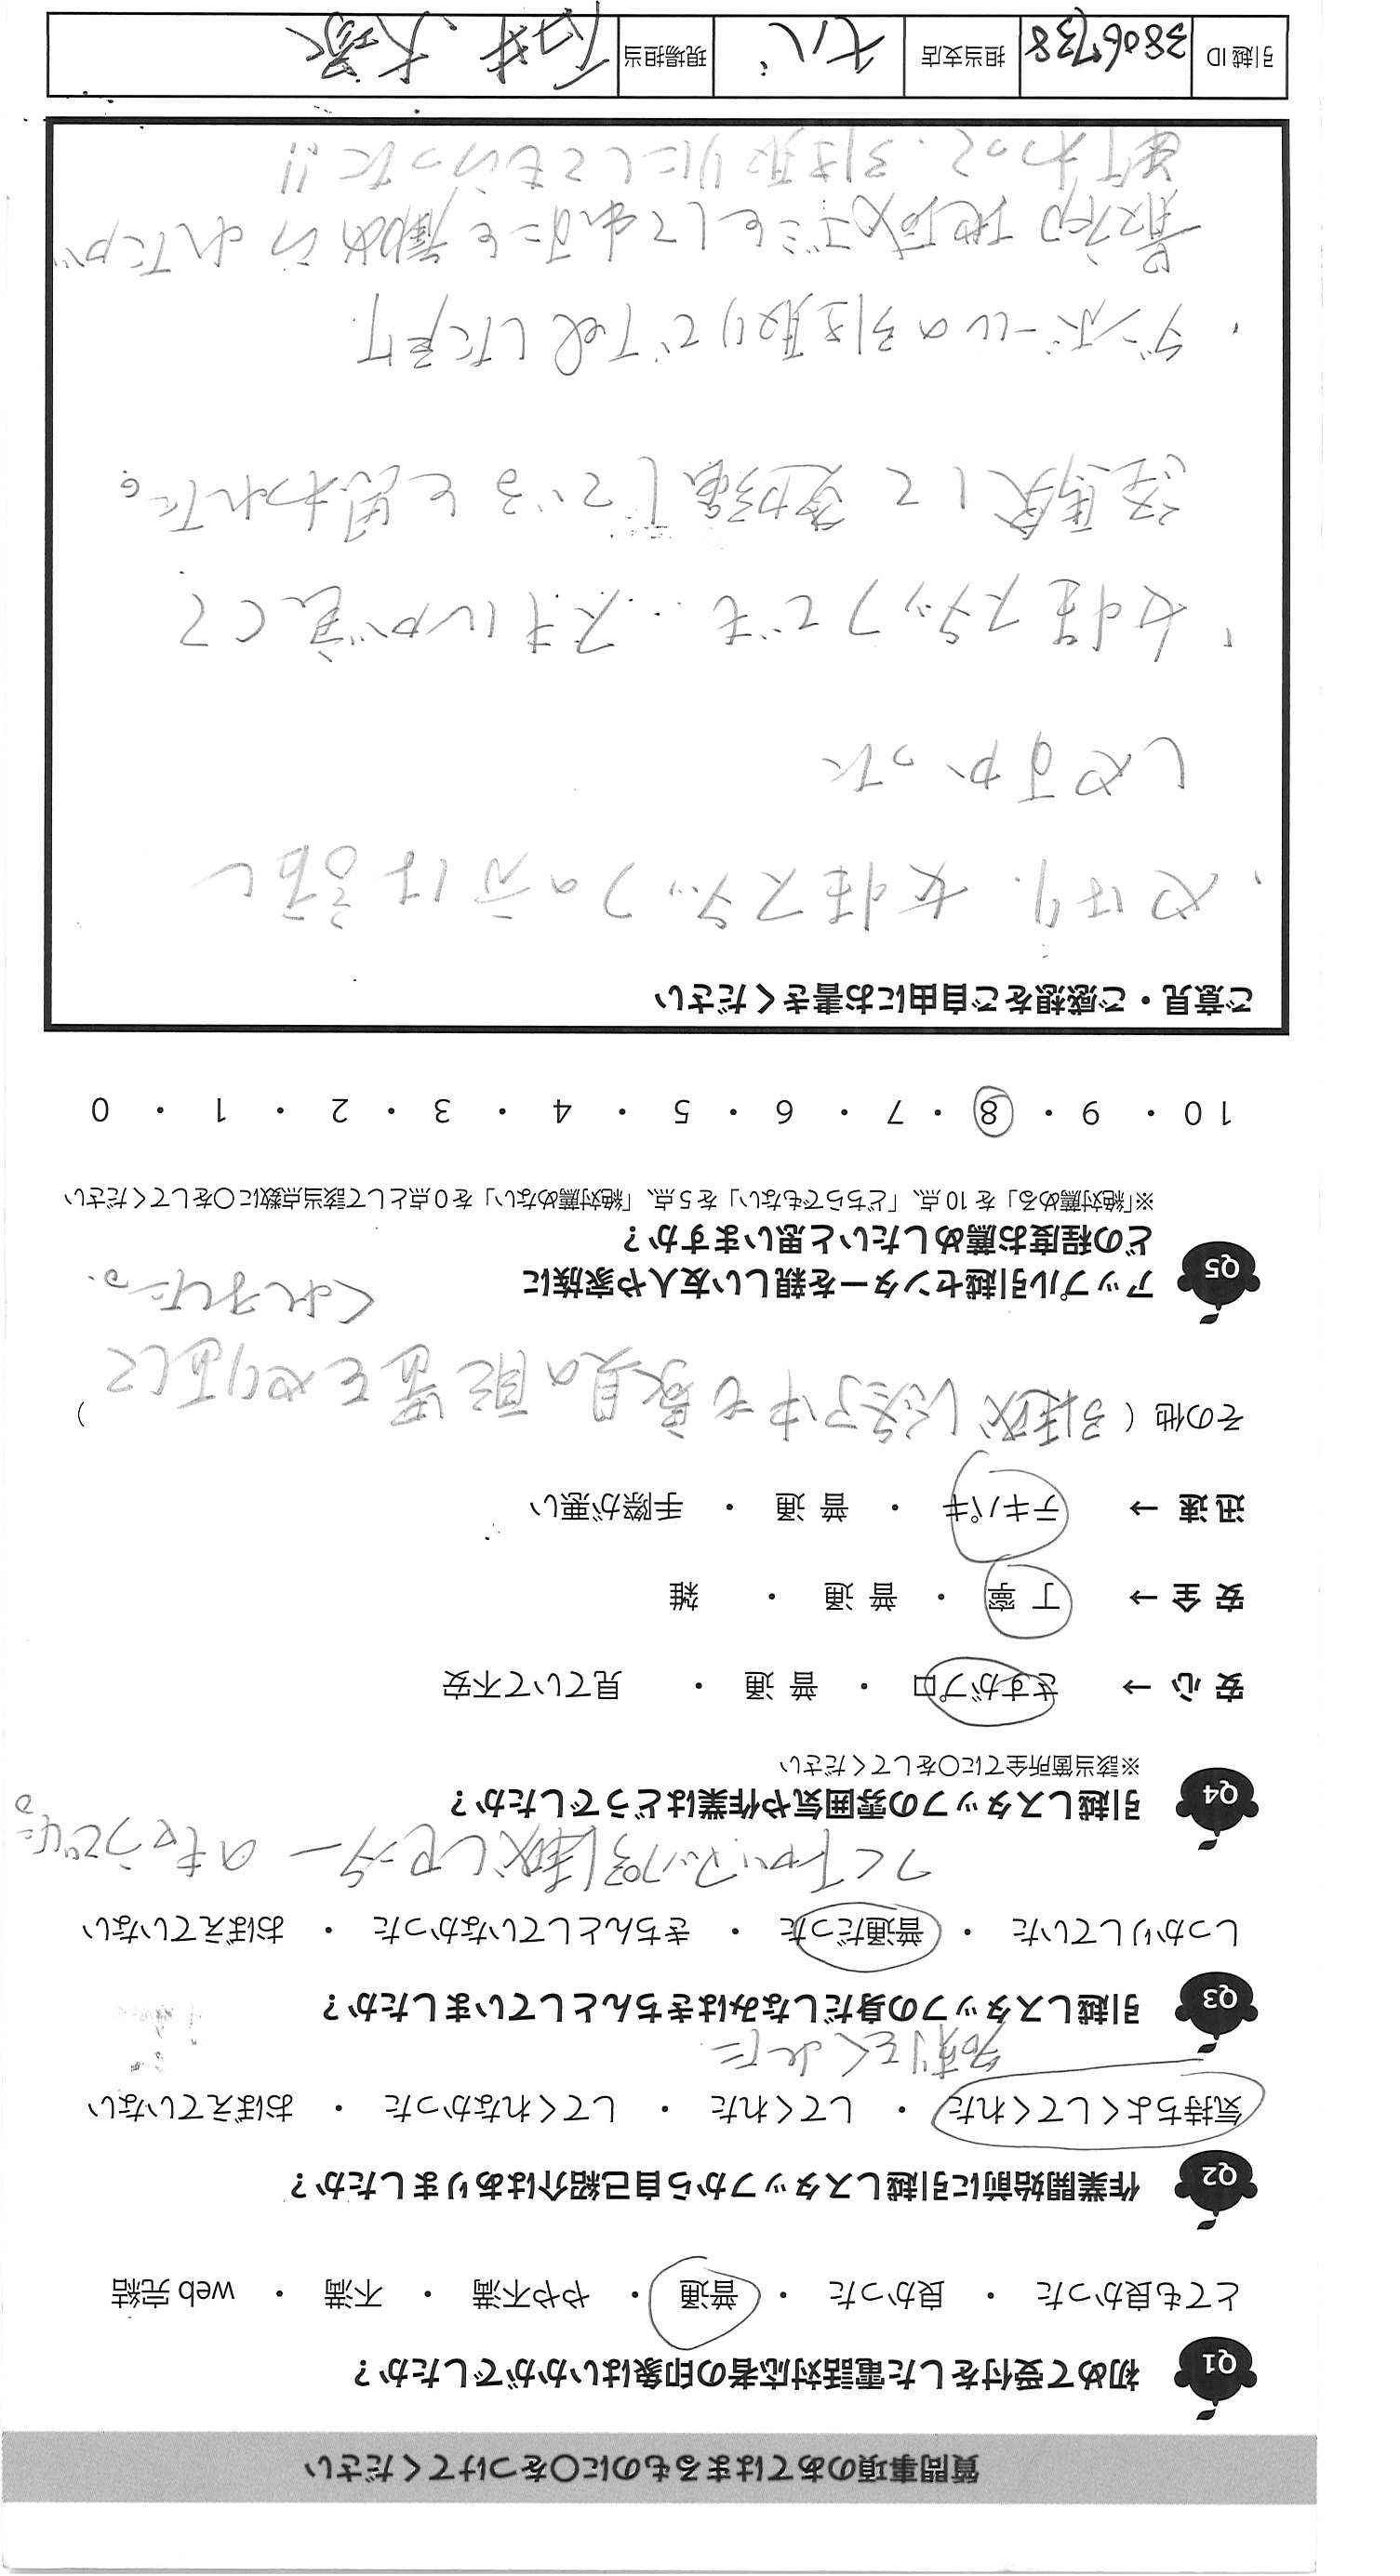 質問事項のあてはまるものに〇をつけてください
Q1 初めて受付をした電話対応者の印象はいかがでしたか？
とても良かった ・ 良かった ・ 普通 ・ やや不満 ・ 不満 ・ web 完結
Q2 作業開始前に引越しスタッフから自己紹介はありましたか？
気持ちよくしてくれた ・ してくれた ・ してくれなかった ・ おぼえていない
名刺をくれた
Q3 引越しスタッフの身だしなみはきちんとしていましたか？
しっかりしていた ・ 普通だった ・ きちんとしていなかった ・ おぼえていない
アップル引越しセンターのもようでした。
Q4 引越しスタッフの雰囲気や作業はどうでしたか？
※該当箇所全てに〇をしてください
安 心 → さすがプロ ・ 普 通 ・ 見ていて不安
安 全 → 丁 寧 ・ 普 通 ・ 雑
迅 速 → テキパキ ・ 普 通 ・ 手際が悪い
その他 ( 引越し作業中も家具の配置をやり直して )
くれました。
Q5 アップル引越センターを親しい友人や家族に
どの程度お薦めしたいと思いますか？
※「絶対薦める」を 10 点、「どちらでもない」を 5 点、「絶対薦めない」を 0 点として該当点数に〇をしてください
10 ・ 9 ・ 8 ・ 7 ・ 6 ・ 5 ・ 4 ・ 3 ・ 2 ・ 1 ・ 0
ご意見・ご感想をご自由にお書きください
・やはり、女性スタッフの方は話し
しやすかった
・女性スタッフでも、スキルが高くて
経験して勉強していると思われた。
・ダンボールの引き取りでTELした時
最初地域ゴミとして出すことを薦められたが
断わって、引き取りにしてもらった!!
引越 ID 3806738 担当支店 七八 現場担当 石井、大塚